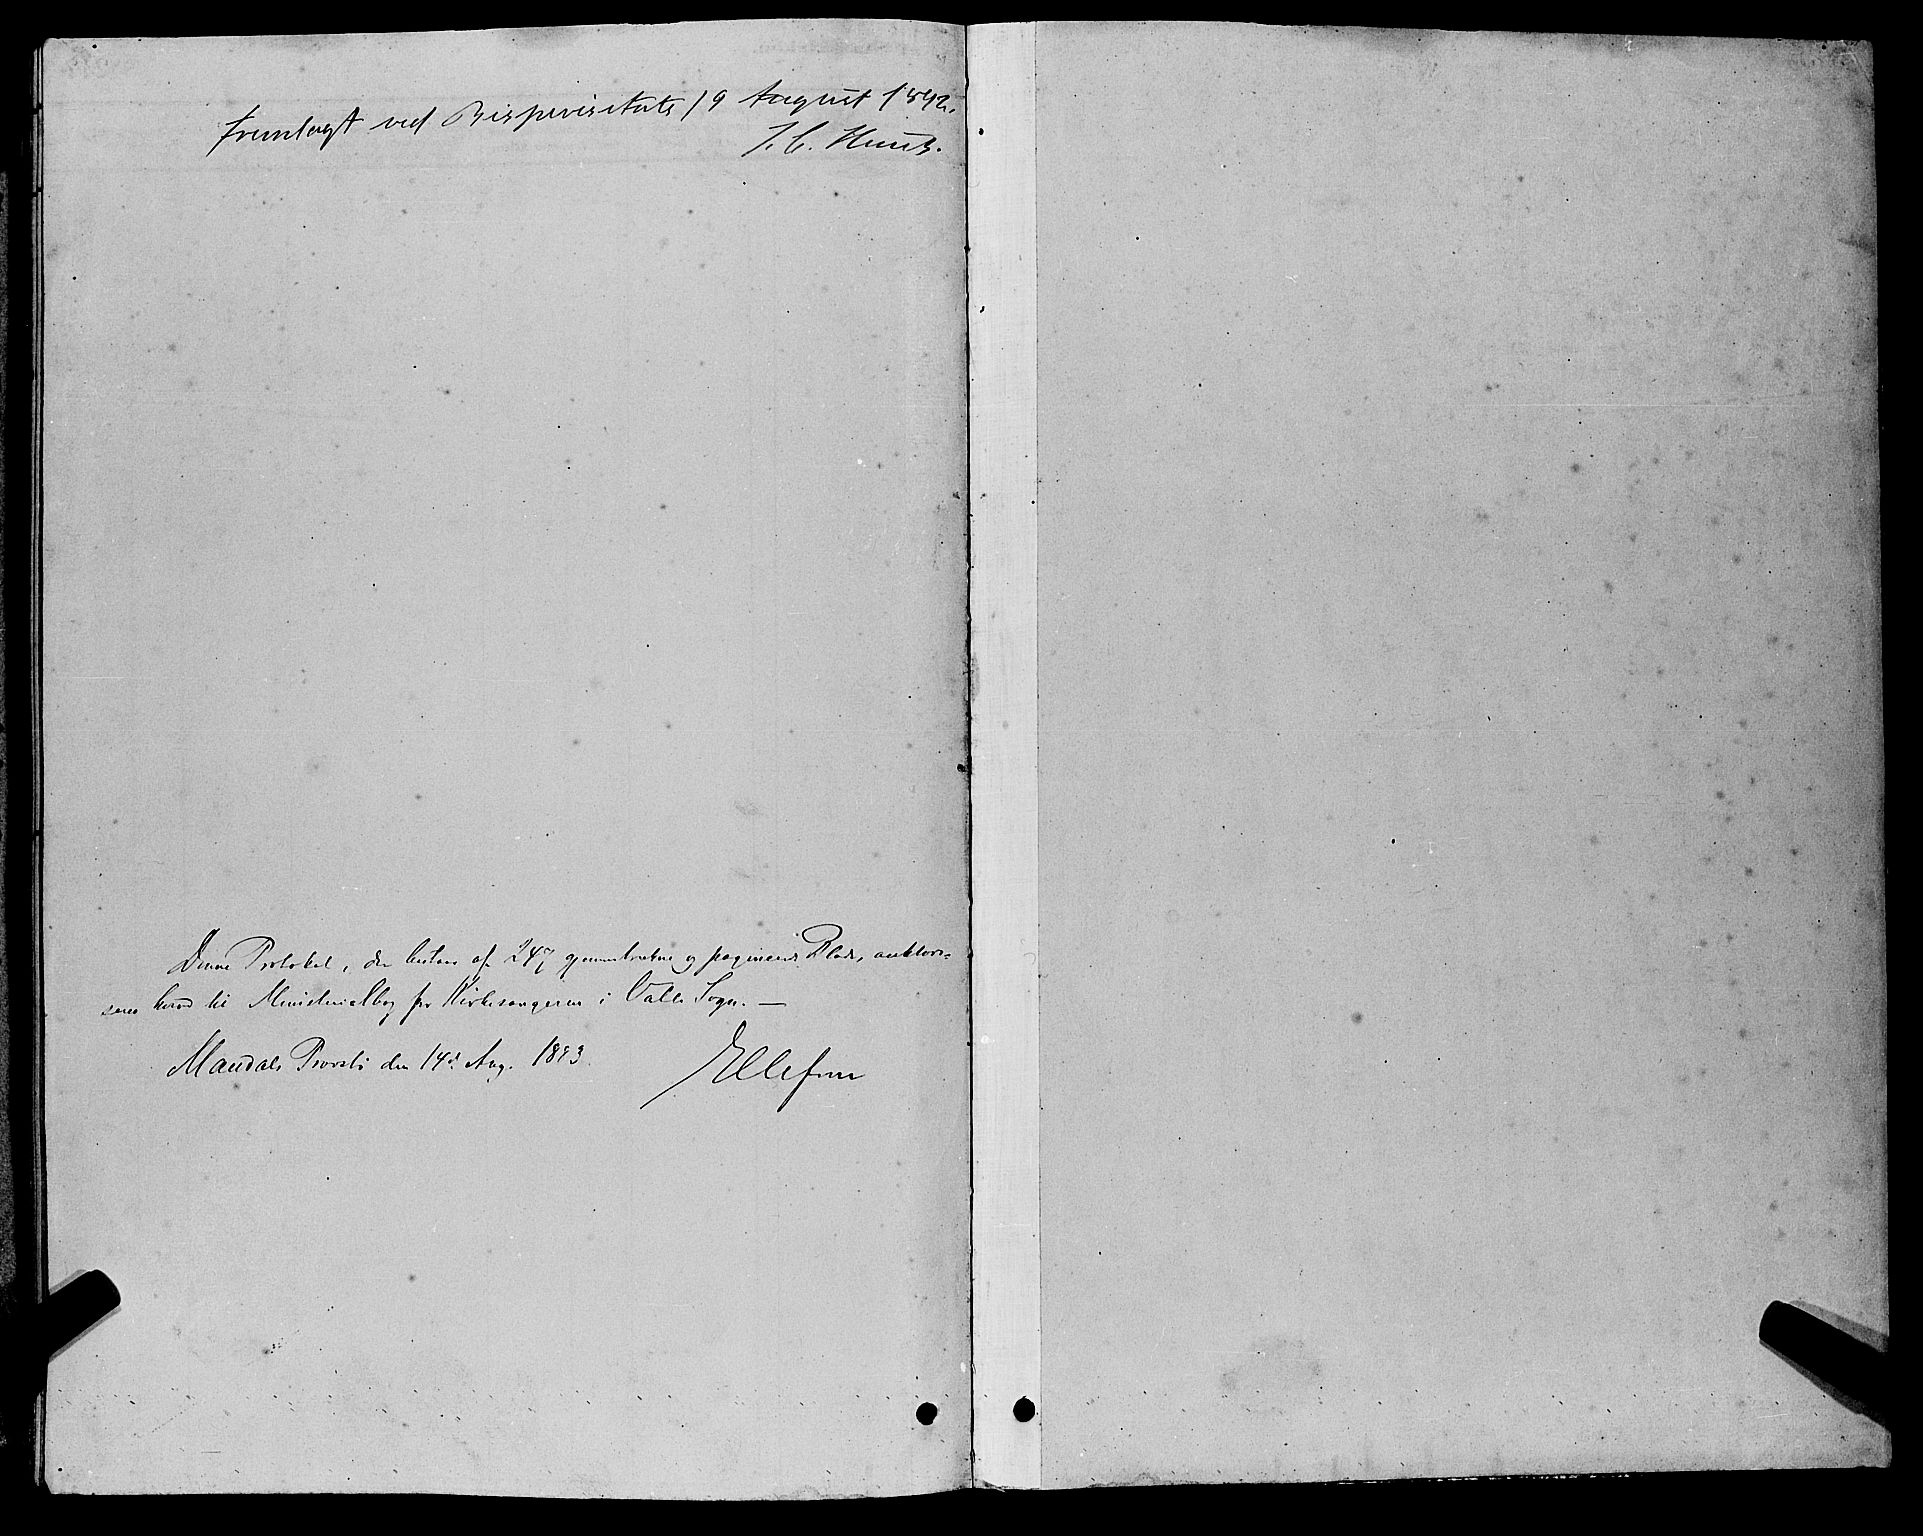 fremlagt ved Bispevisitats 19 August 1892.
J. C. Heuch.
Denne Protokol, der bestaar af 247 gjennemtrukne og paginerede Blade, auktori-
seres herved til Ministerialbog for Kirkesangeren i Valle Sogn. —
Mandals Provsti den 14de Aug. 1883.
Ellefsen